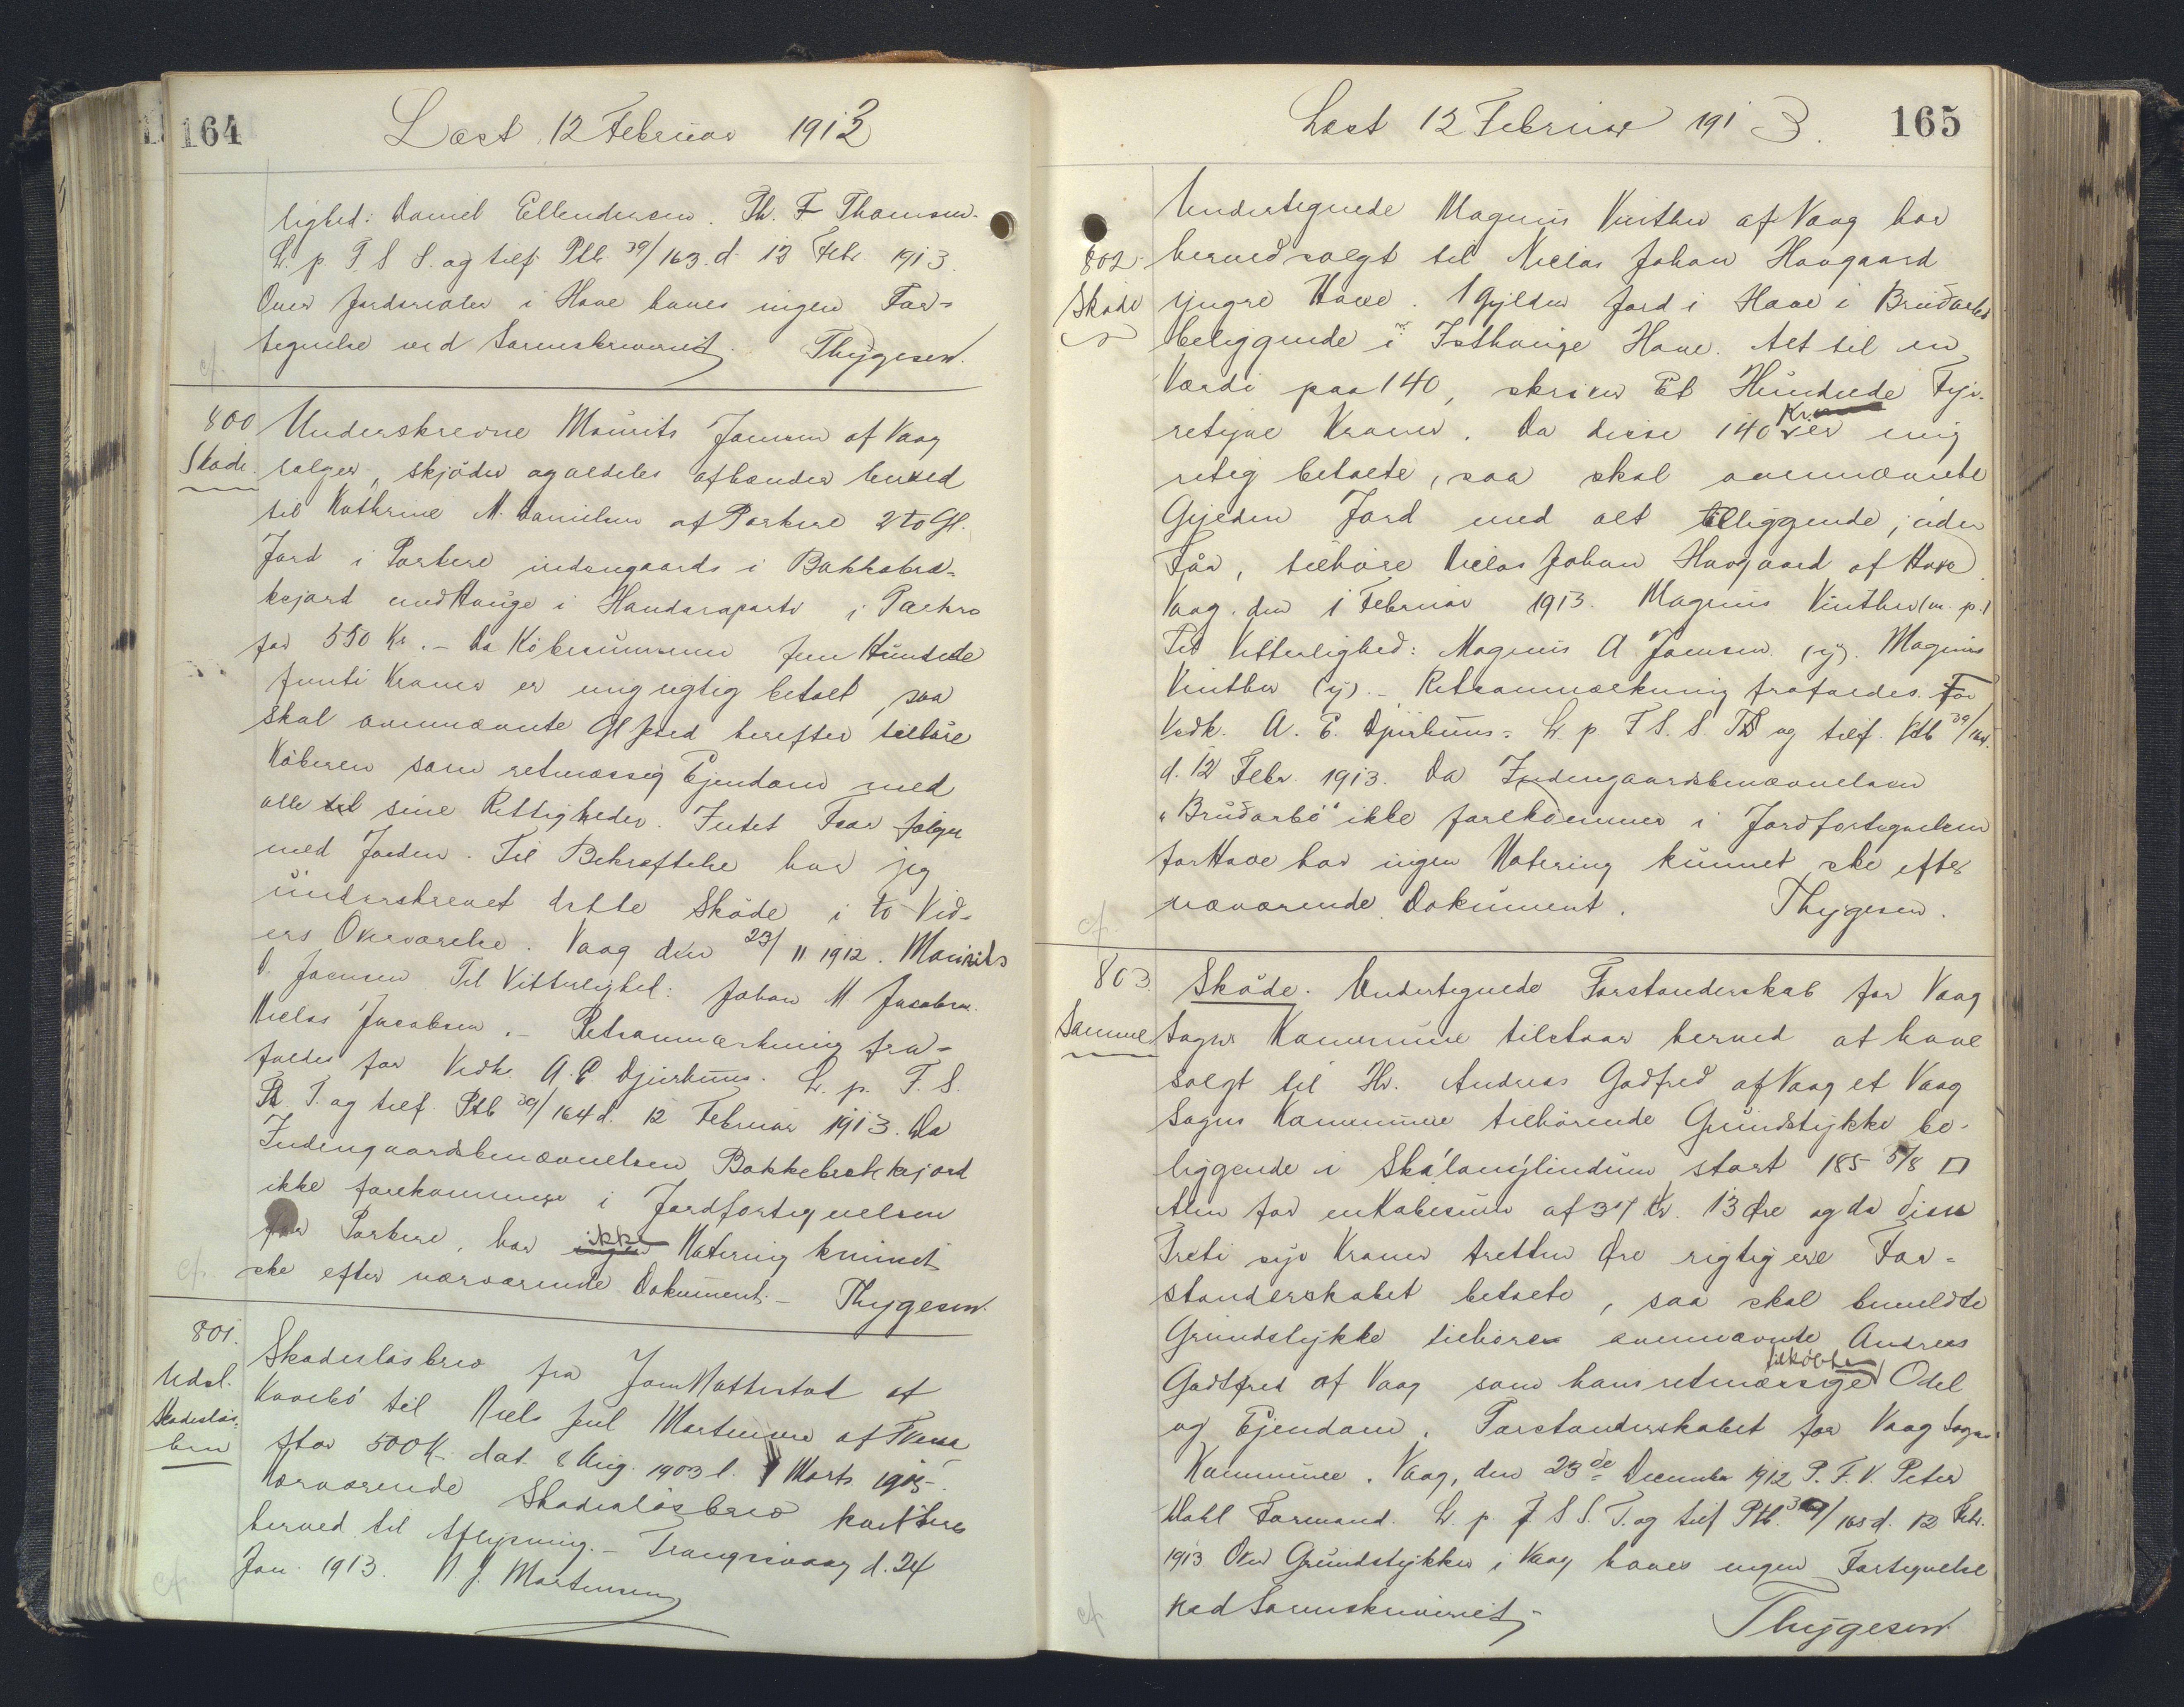 164
Læst 12 Februar 1913
lighed: Daniel Ellendersen. Th. F Thomsen.
L. p. T. S S. og tilf. Ptb 39/163. d. 12 Febr. 1913.
Over Jordarealer i Hove haves ingen For-
tegnelse ved Sorenskriveriet. Thygesen.
cf.
800 Underskrevne Mourits Joensen af Vaag
Skøde. sælger, skjöder og aldeles afhænder herved
til Kathrine M. Danielsen af Porkere 2 to Gl.
Jord i Porkere indengaards i Bakkabra-
kejord med Hauge i Handaraparti i Porkere
for 550 Kr. - Da Köbesummen fem Hundrede
femti Kroner er mig rigtig betalt, saa
skal ovennævnte Gl Jord herefter tilhöre
Köberen som retmæssig Ejendom med
alle til sine Rettigheder. Intet Faar følger
med Jorden. Til Bekræftelse har jeg
underskrevet dette Sköde i to Vid-
ners Overværelse. Vaag den 23/11 1912. Mourits
D. Joensen. Til Vitterlighed: Johan M. Jacobsen.
Niclas Jacobsen. - Retsanmærkning fra-
faldes for Vedk. A. E. Djurhuus. L. p. T. S.
T. og tilf. Ptb 39/164 d. 12 Februar 1913. Da
Indengaardsbenævnelsen Bakkebrekkejord
ikke forekommer i Jordfortegnelsen
for Porkere, har ingen ikke Notering kunnet
ske efter nærværende Dokument. - Thygesen.
cf.
801. Skadeslösbrev fra Joen Mattestad af
Udsl. Kvalbö til Niels Juul Mortensen af Tveraa
Skadeslös- stor 500 K. dat. 8 Aug. 1903 l. Marts 1905.
brev Nærværende Skadeslösbrev kvitteres
herved til Aflysning. - Trangisvaag d. 24
Jan. 1913. N. J. Mortensen
cf.
Læst 12 Februar 1913. 165
Undertegnede Magnus Vinther af Vaag har
802. herved solgt til Niclas Johan Hovgaard
Sköde yngre Hove. 1 Gylden Jord i Hove i Bruðarbö
beliggende i Isthauge Hove. Alt til en
Værdi paa 140, skriver Et Hundrede Fyr-
retyve Kroner. Da disse 140 Kr. er mig
rigtig betalte, saa skal ovennævnte
Gylden Jord med alt tilliggende, uden
Får, tilhøre Niclas Johan Hovgaard af Hove
Vaag. den 1 Februar 1913. Magnus Vinther (m. p.)
Til Vitterlighed: Magnus A Joensen (y). Magnus
Vinther (y). - Retsanmærkning frafaldes. For
Vedk. A. E. Djurhuus. L. p. T S. S. og tilf. Ptb 39/164.
d. 12 Febr. 1913. Da Indengaardsbenævnelsen
"Bruðarbö" ikke forekommer i Jordfortegnelsen
for Hove har ingen Notering kunnet ske efter
nærværende Dokument. Thygesen.
cf.
803. Sköde. Undertegnede Forstanderskab for Vaag
Samme Sogns Kommune tilstaar herved at have
solgt til Hr. Andreas Godtfred af Vaag et Vaag
Sogns Kommune tilhörende Grundstykke be-
liggende i Skálanýlindum stort 185 5/8 □
Alen for en Købesum af 37 Kr. 13 Øre og da disse
Treti syv Kroner tretten Øre rigtig ere For-
standerskabet betalte, saa skal bemeldte
Grundstykke tilhöre ovennævnte Andreas
Godtfred af Vaag som hans retmæssige tilköbte Odel
og Ejendom. Forstanderskabet for Vaag Sogns
Kommune. Vaag, den 23de December 1912 P. F. V. Peter
Dahl Formand. L. p. T S S. T. og tilf Ptb. 39/165 d. 12 Febr.
1913 Over Grundstykker i Vaag haves ingen Fortegnelse
ved Sorenskriveriet.
cf. Thygesen.